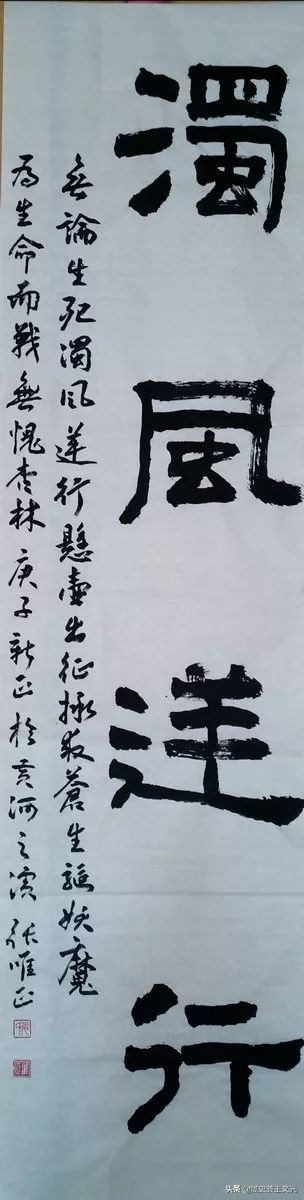 濁風逆行
無論生死濁風逆行懸壺出征拯救蒼生驅妖魔
為生命而戰無愧杏林 庚子新正於黄河之濱 張唯正
头条 @陇史荟王文元